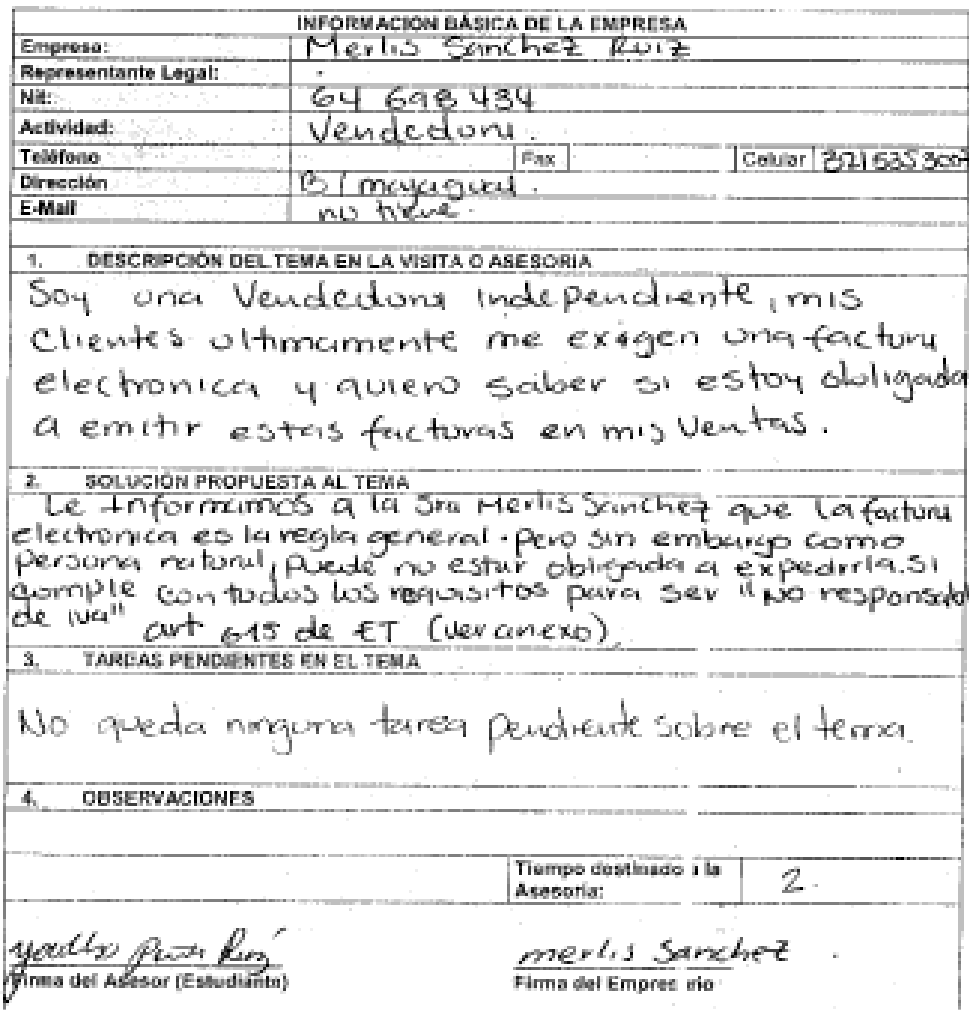 INFORMACION BÁSICA DE LA EMPRESA
Empresa: Merlis Sanchez Ruiz
Representante Legal:
Nit: 64 698 434
Actividad: Vendedora.
Teléfono Fax Celular 321 535 300
Dirección B/ mayagual.
E-Mail no tiene.
1. DESCRIPCIÓN DEL TEMA EN LA VISITA O ASESORIA
Soy una Vendedora independiente, mis
Clientes ultimamente me exigen una factura
electronica y quiero saber si estoy obligada
a emitir estas facturas en mis Ventas.
2. SOLUCIÓN PROPUESTA AL TEMA
Le Informamos a la Sra Merlis Sanchez que la factura
electronica es la regla general. pero sin embargo como
persona natural, puede no estar obligada a expedirla. si
cumple con todos los requisitos para ser "no responsable
de iva" art 615 de ET (ver anexo)
3. TAREAS PENDIENTES EN EL TEMA
No queda ninguna tarea pendiente sobre el tema.
4. OBSERVACIONES
Tiempo destinado a la
Asesoria: 2.
merlis Sanchez
Firma del Asesor (Estudiante) Firma del Empresario